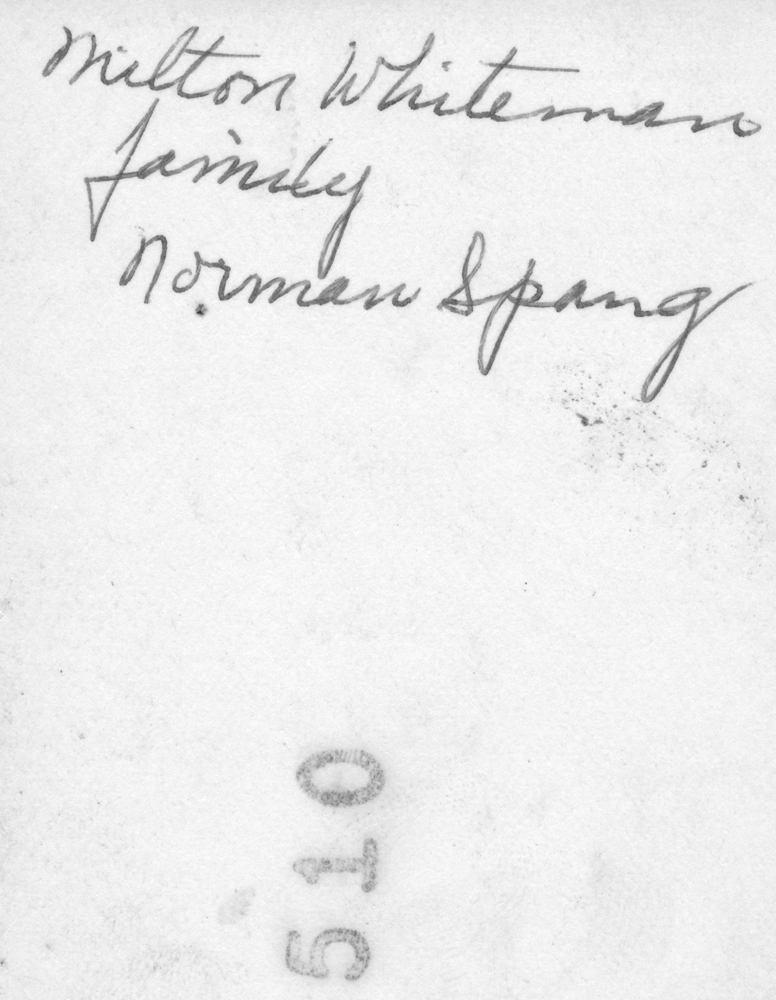 Milton Whiteman
family
Norman Spang
510